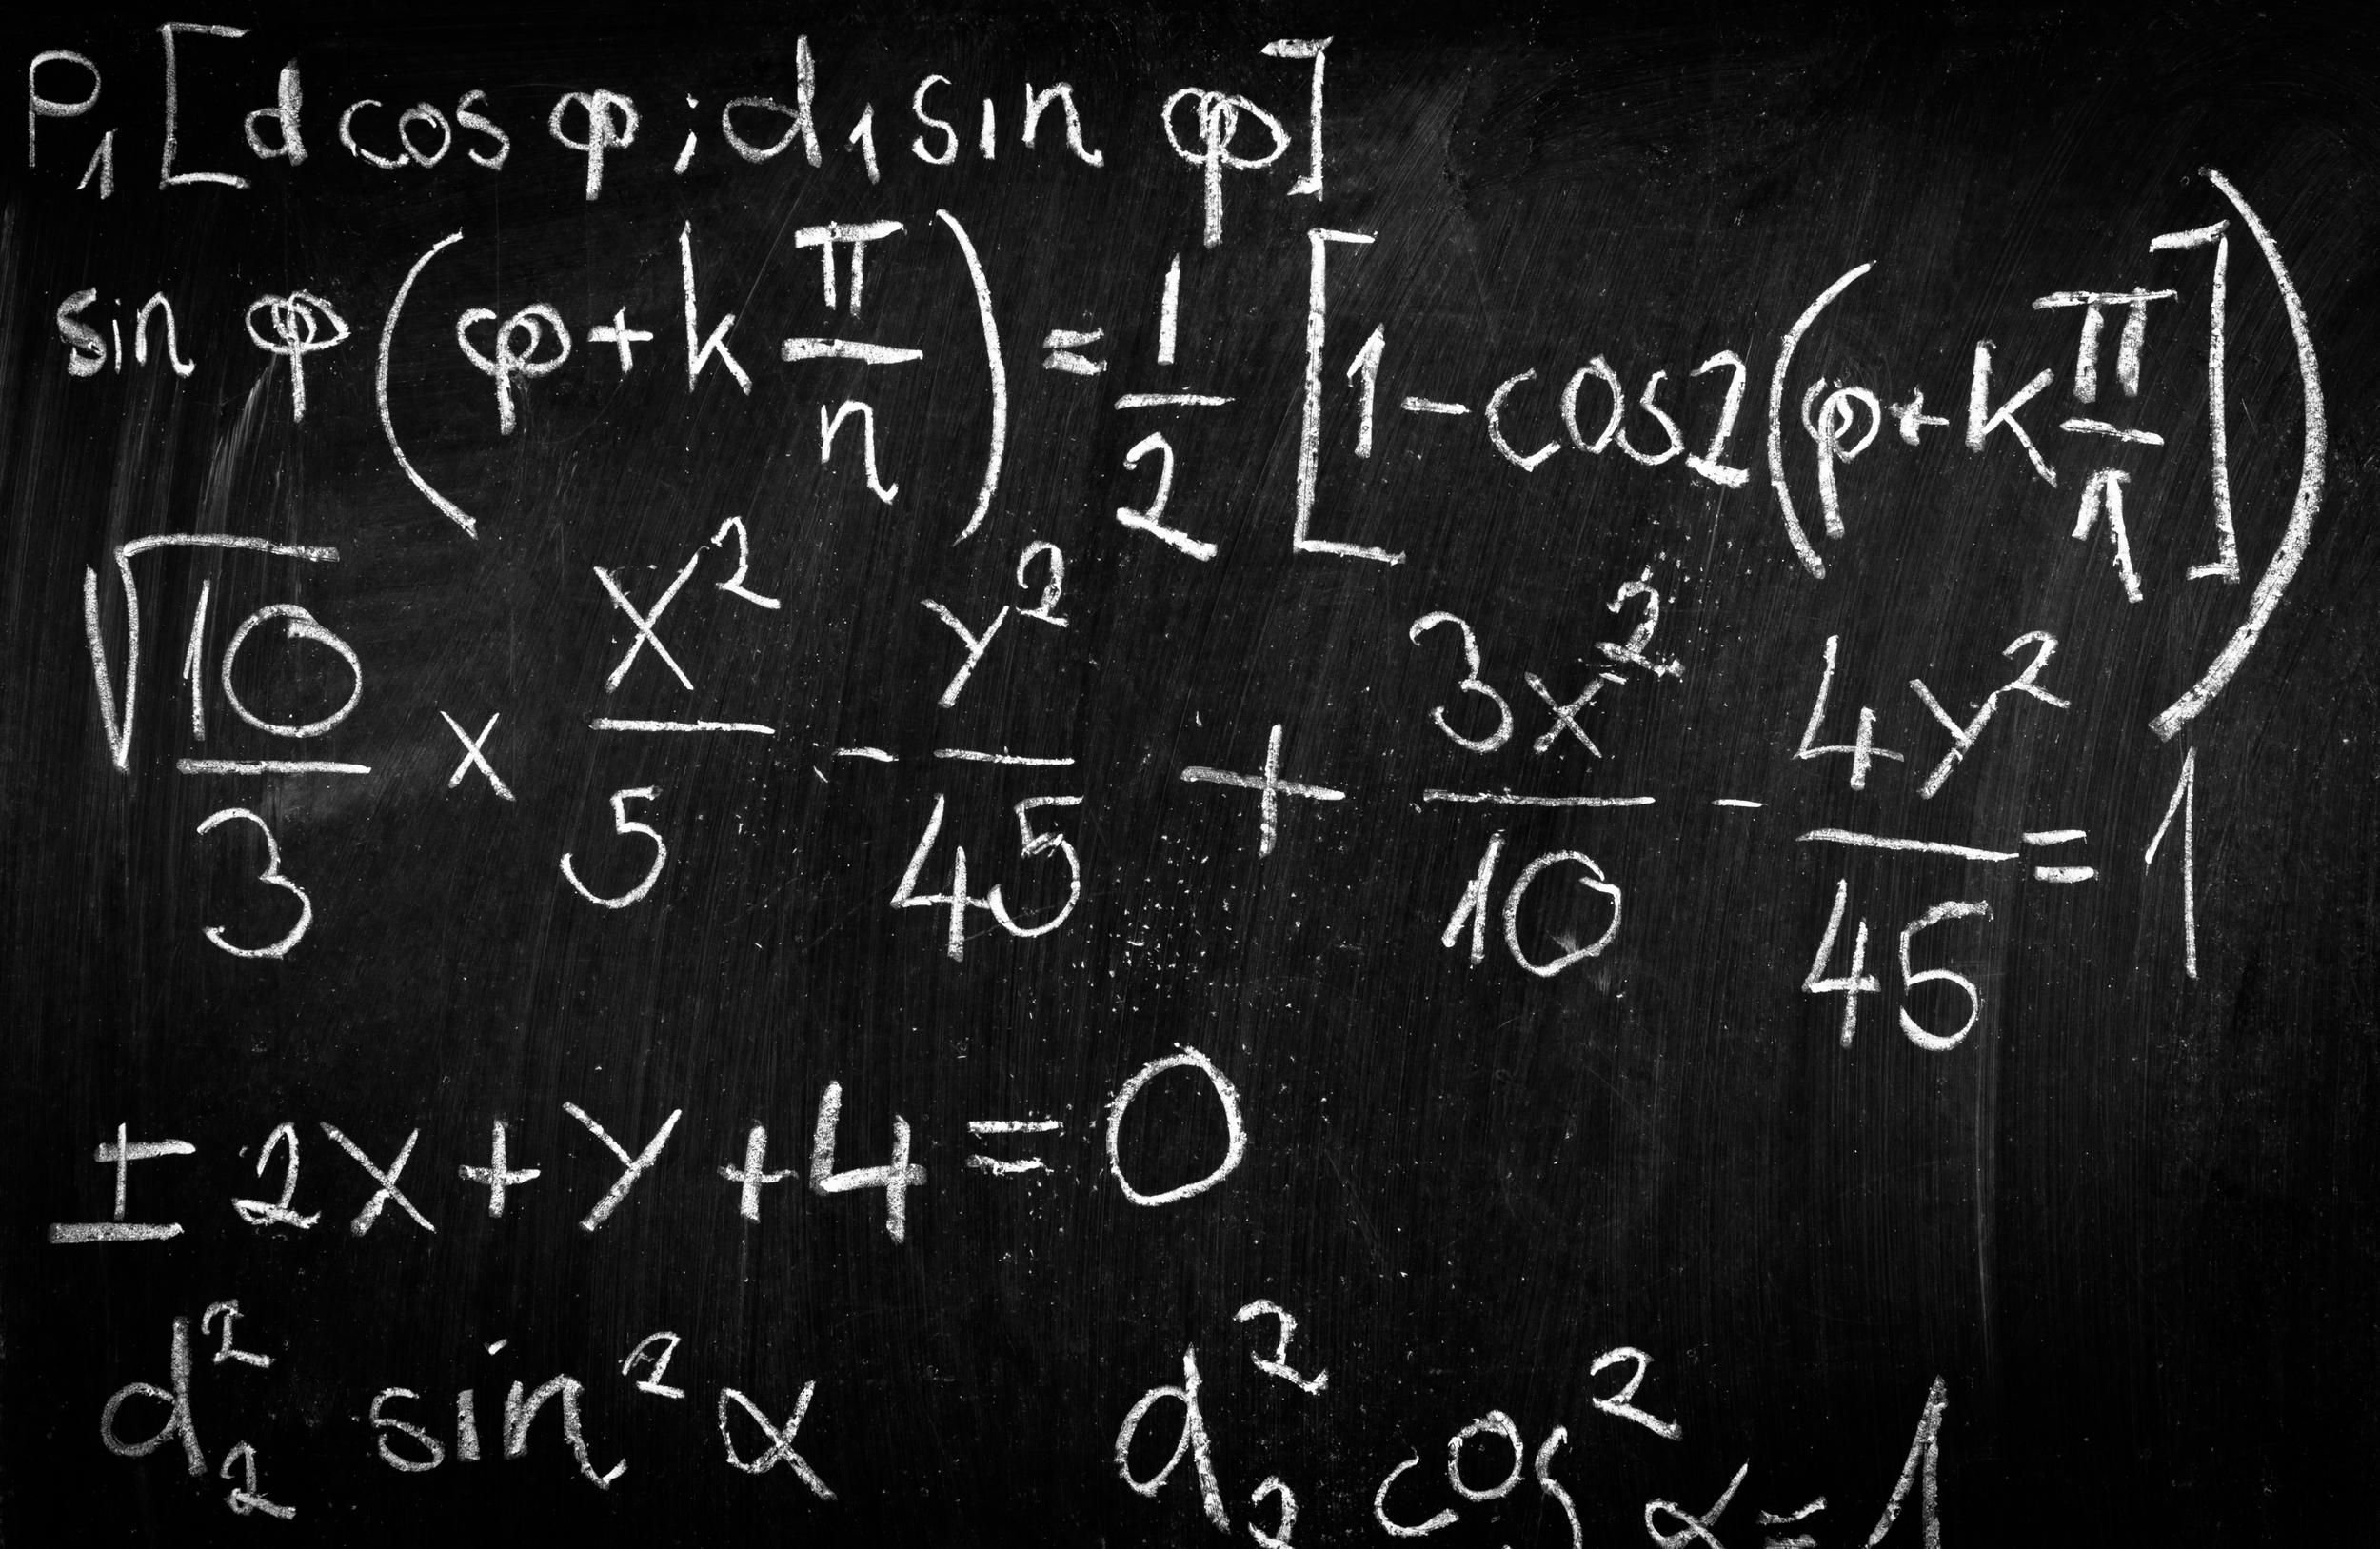 P₁[d cos φ; d₁ sin φ]
sin φ(φ+k π/n) = 1/2 [1-cos2(φ+k π/1])
√10/3 x x²/5 - y²/45 + 3x²/10 - 4y²/45 = 1
± 2x+y+4=0
d₂² sin²α d₂² cos²α=1